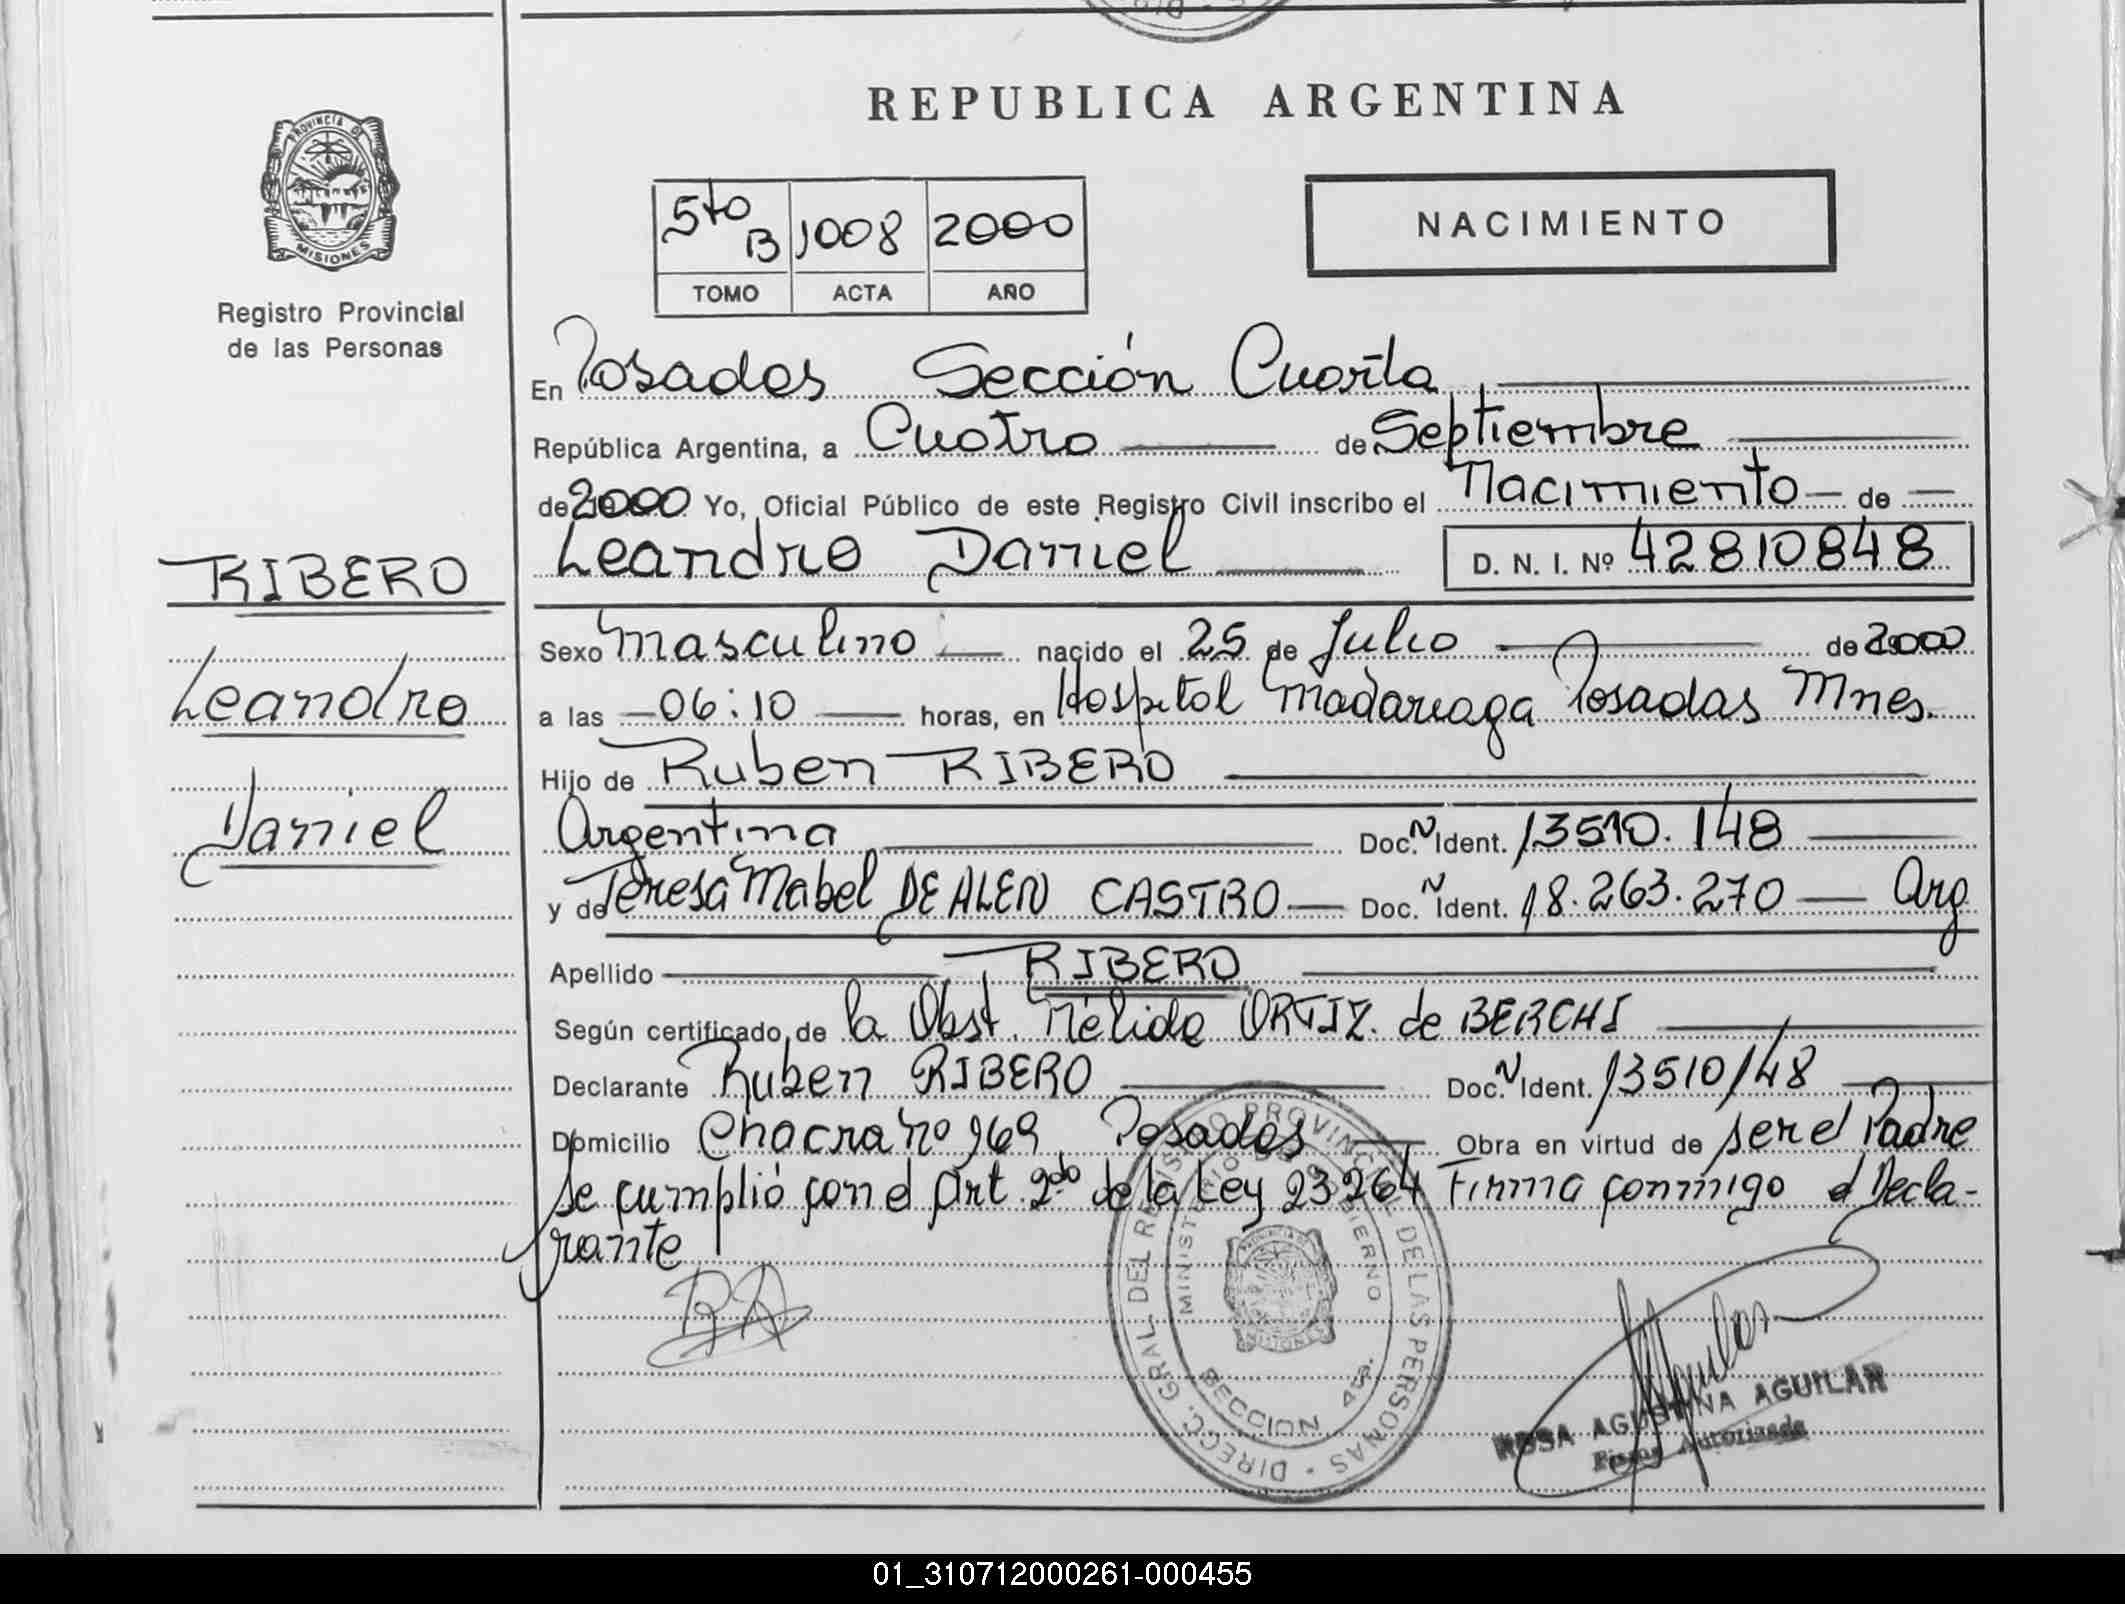 REPUBLICA ARGENTINA
PROVINCIA DE
MISIONES
Registro Provincial
de las Personas
NACIMIENTO
5to B 1008 2000
TOMO ACTA AÑO
En Posadas Sección Cuarta
República Argentina, a Cuatro de Septiembre
de 2000 Yo, Oficial Público de este Registro Civil inscribo el Nacimiento de
Leandro Daniel D. N. I. Nº 42810848
RIBERO
Leandro
Daniel
Sexo Masculino nacido el 25 de Julio de 2000
a las 06:10 horas, en Hospital Madariaga Posadas Mnes.
Hijo de Ruben RIBERO
Argentina Doc. N Ident. 13510.148
y de Teresa Mabel DE ALEN CASTRO Doc. N Ident. 18.263.270 Arg
Apellido RIBERO
Según certificado de la Obst. Nélida ORTIZ. de BERCHI
Declarante Ruben RIBERO Doc. N Ident. 13510148
Domicilio Chacra Nº 169 Posadas Obra en virtud de ser el Padre
Se cumplió con el Art. 2do de la Ley 23264 Firma conmigo el Decla-
rante
DIRECC. GRAL. DEL REGISTRO PROVINCIAL DE LAS PERSONAS
MINISTERIO DE GOBIERNO
SECCION 4ta.
MISIONES
Aguilar
ROSA AGUSTINA AGUILAR
Firma Autorizada
01_310712000261-000455